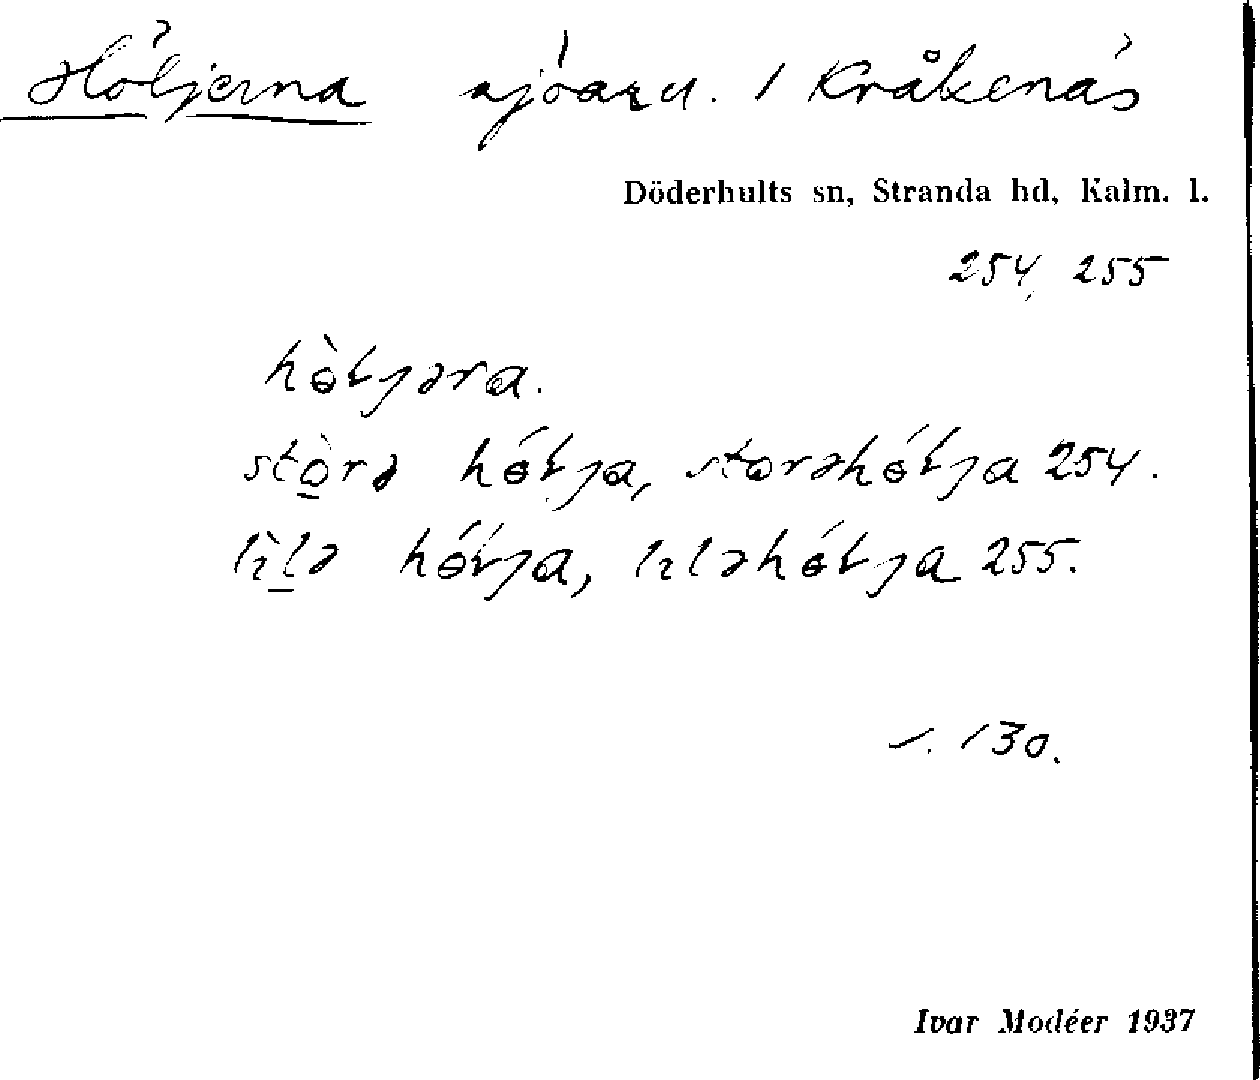 Höljerna sjöar u. / Kråkenäs
Döderhults sn, Stranda hd, Kalm. l.
254, 255
hɵ̀ƚjəra.
stò̲rə hɵ́ƚja, storəhɵ́ƚja 254.
lìl̲ə hɵ́ƚja, liləhɵ́ƚja 255.
s. 130.
Ivar Modéer 1937